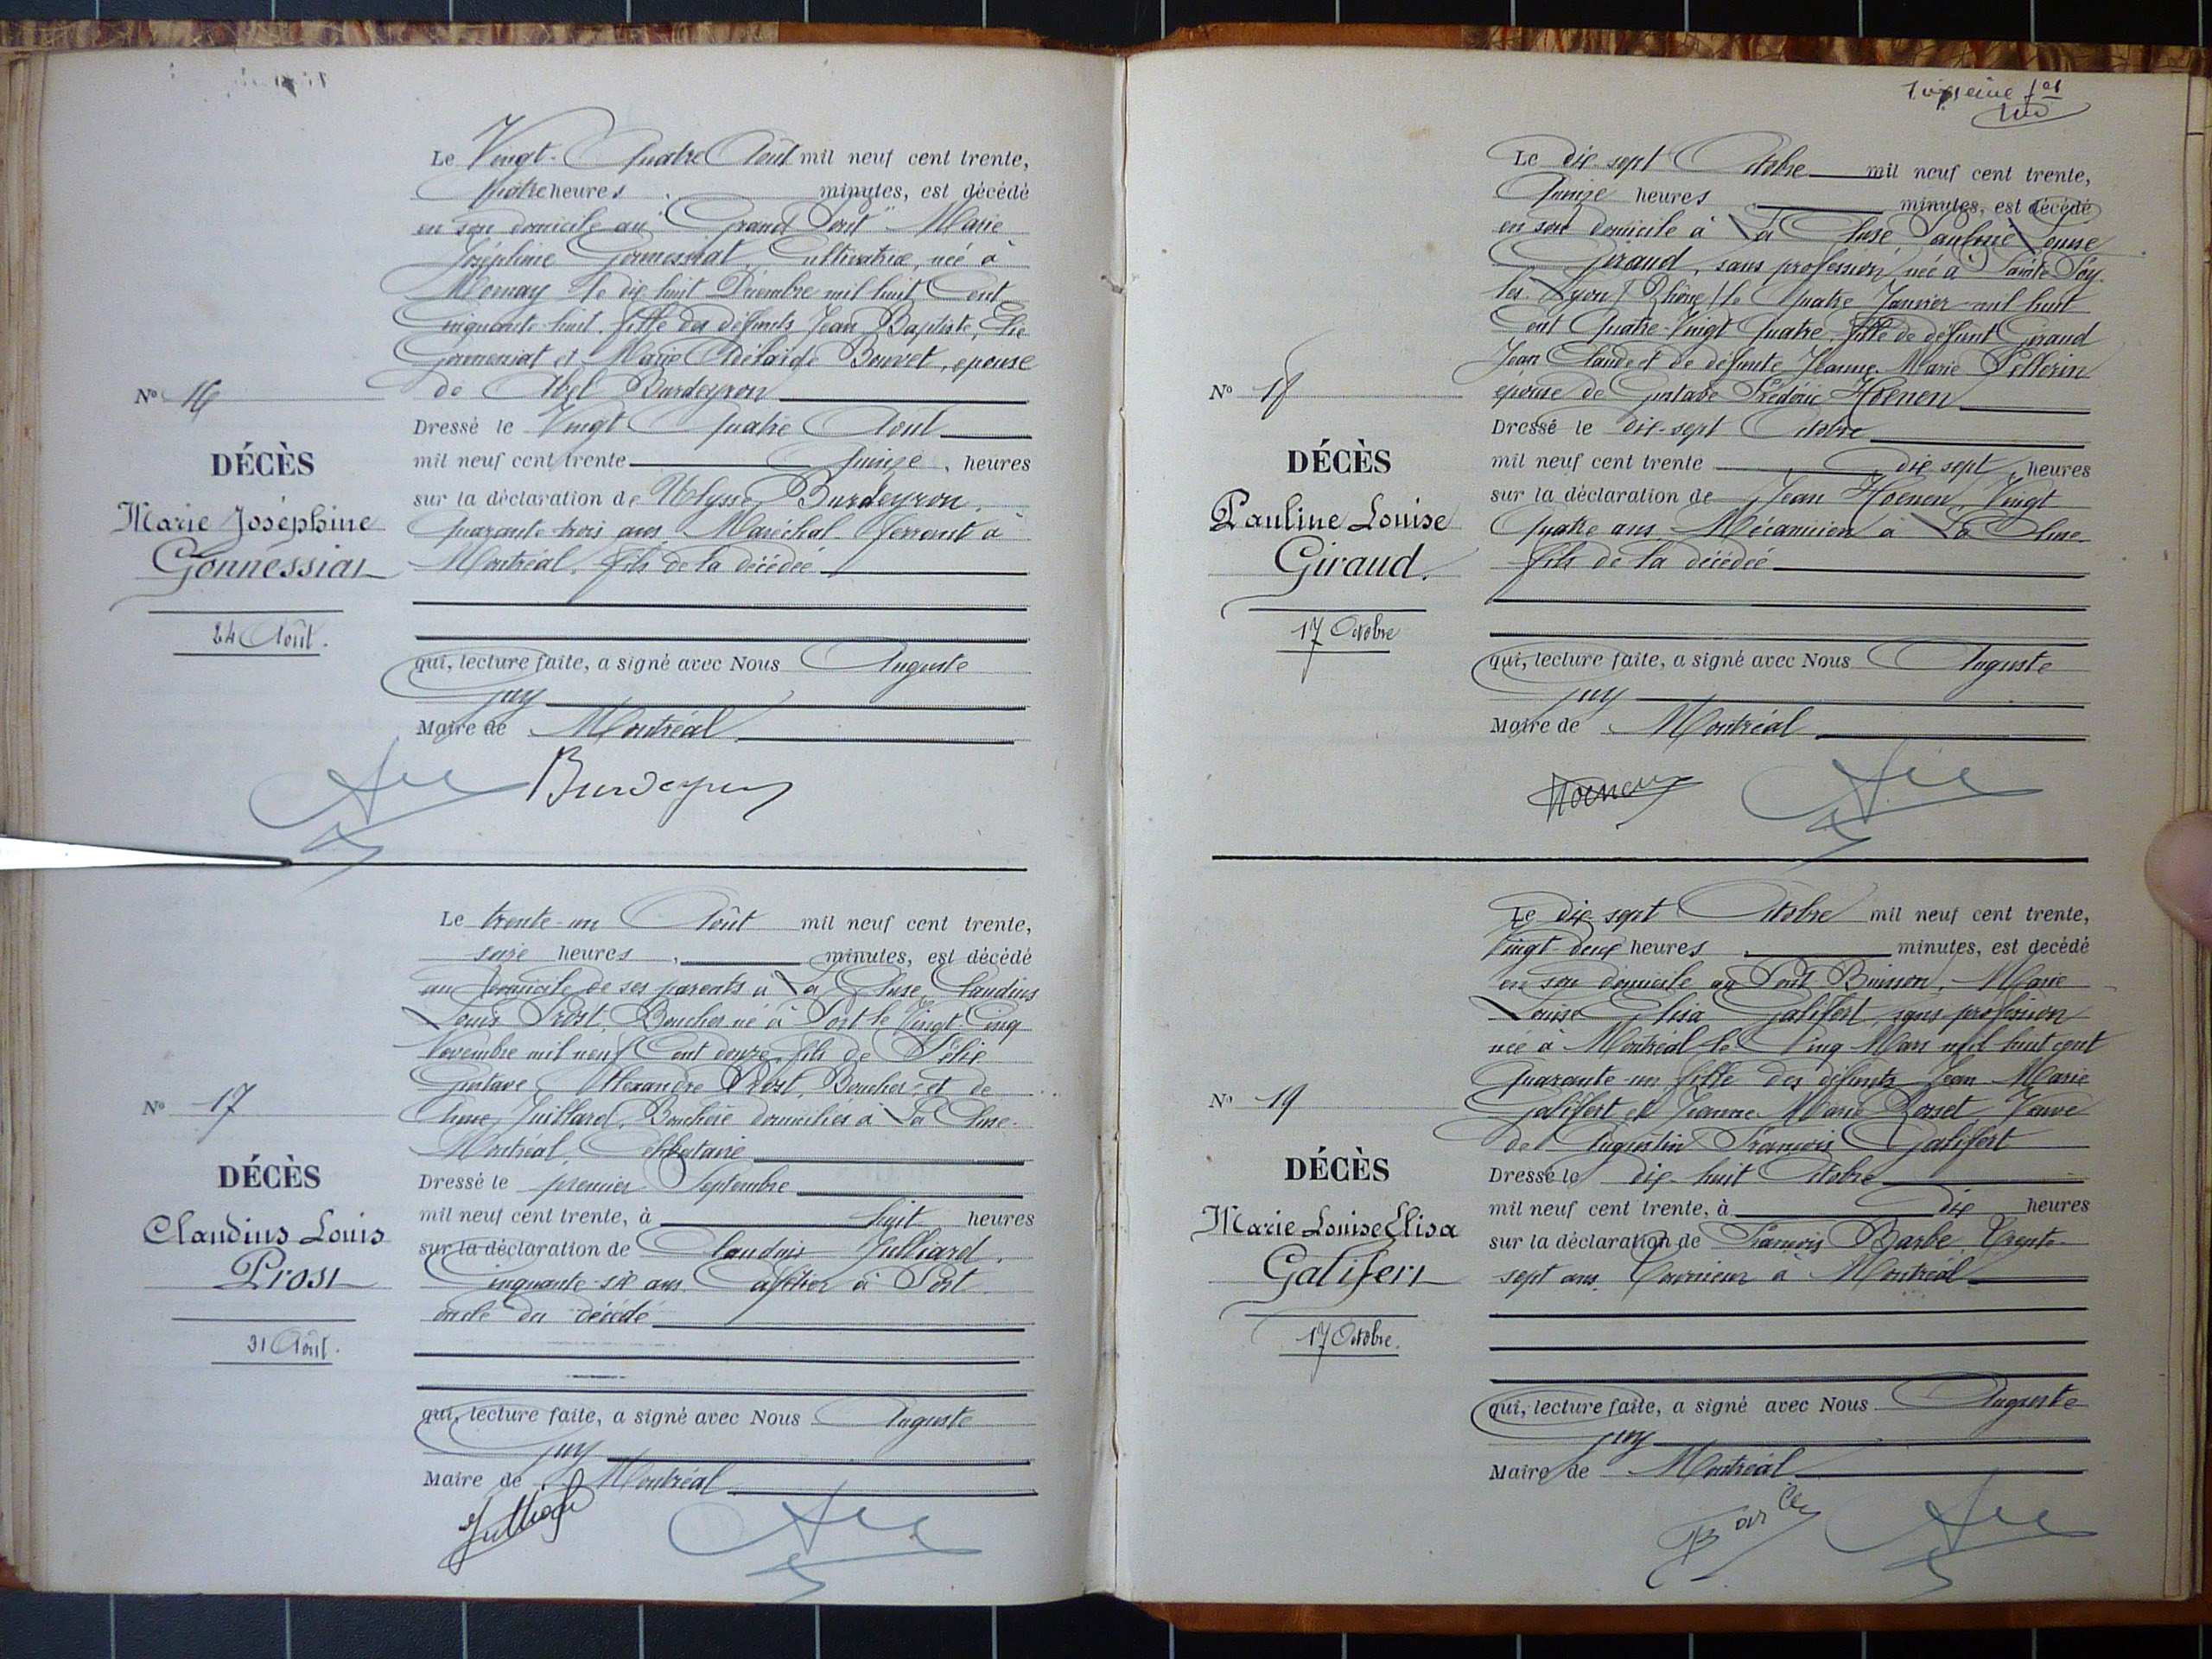 Le Vingt-Quatre Août mil neuf cent trente,
Quatre heures, minutes, est décédé
en son domicile au "Grand Pont" Marie
Joséphine Gonnessiat, Cultivatrice, née à
Mornay le dix huit Décembre mil huit Cent
cinquante-huit, fille des défunts Jean Baptiste, Elie
Gonnessiat et Marie Adélaïde Bouvet, épouse
de Abel Burdeyron
Nº 16
DÉCÈS
Marie Joséphine
Gonnessiat
24 Août.
Dressé le Vingt Quatre Août
mil neuf cent trente Quinze, heures
sur la déclaration de Ulysse Burdeyron,
quarante-trois ans, Maréchal-ferrant à
Montréal, fils de la décédée
qui, lecture faite, a signé avec Nous Auguste
Guy
Maire de Montréal
Burdeyron
Le trente-un Août mil neuf cent trente,
seize heures, minutes, est décédé
au domicile de ses parents à La Cluse, Claudius
Louis Prost, Boucher né à Port le Vingt-Cinq
Novembre mil neuf Cent douze, fils de Félix
Gustave Alexandre Prost, Boucher et de
Juillard, Bouchère domiciliés à La Cluse-
Montréal, Célibataire
Nº 17
DÉCÈS
Claudius Louis
Prost
31 Août.
Dressé le premier Septembre
mil neuf cent trente, à huit heures
sur la déclaration de Claudius Julliard,
Cinquante-six ans, Cafetier à Port,
oncle du décédé
qui, lecture faite, a signé avec Nous Auguste
Guy
Maire de Montréal
Le dix-sept Octobre mil neuf cent trente,
Quinze heures minutes, est décédé
en son domicile à La Cluse, Pauline Louise
Giraud, sans profession, née à Sainte Foy-
les-Lyon (Rhône) le Quatre Janvier mil huit
Cent Quatre-Vingt Quatre, fille de défunt Giraud
Jean Claude et de défunte Jeanne Marie Pellerin
épouse de Gustave Frédéric Hoenen
Nº 18
DÉCÈS
Pauline Louise
Giraud.
17 Octobre
Dressé le dix-sept Octobre
mil neuf cent trente dix sept, heures
sur la déclaration de Jean Hoenen, Vingt
Quatre ans, Mécanicien à La Cluse,
fils de la décédée
qui, lecture faite, a signé avec Nous Auguste
Guy
Maire de Montréal
Hoenen
Le dix sept Octobre mil neuf cent trente,
Vingt-deux heures, minutes, est decédé
en son domicile au Pont Buisson, Marie
Louise Elisa Galifert, sans profession
née à Montréal le Cinq Mars mil huit cent
Quarante-un, fille des défunts Jean Marie
Galifert et Jeanne Marie Rosset, Veuve
de Augustin François Galifert
Nº 19
DÉCÈS
Marie Louise Elisa
Galifert
17 Octobre.
Dressé le dix-huit Octobre
mil neuf cent trente, à Dix heures
sur la déclaration de François Barbe, trente-
sept ans, à Montréal
qui, lecture faite, a signé avec Nous Auguste
Guy
Maire de Montréal
Barbe